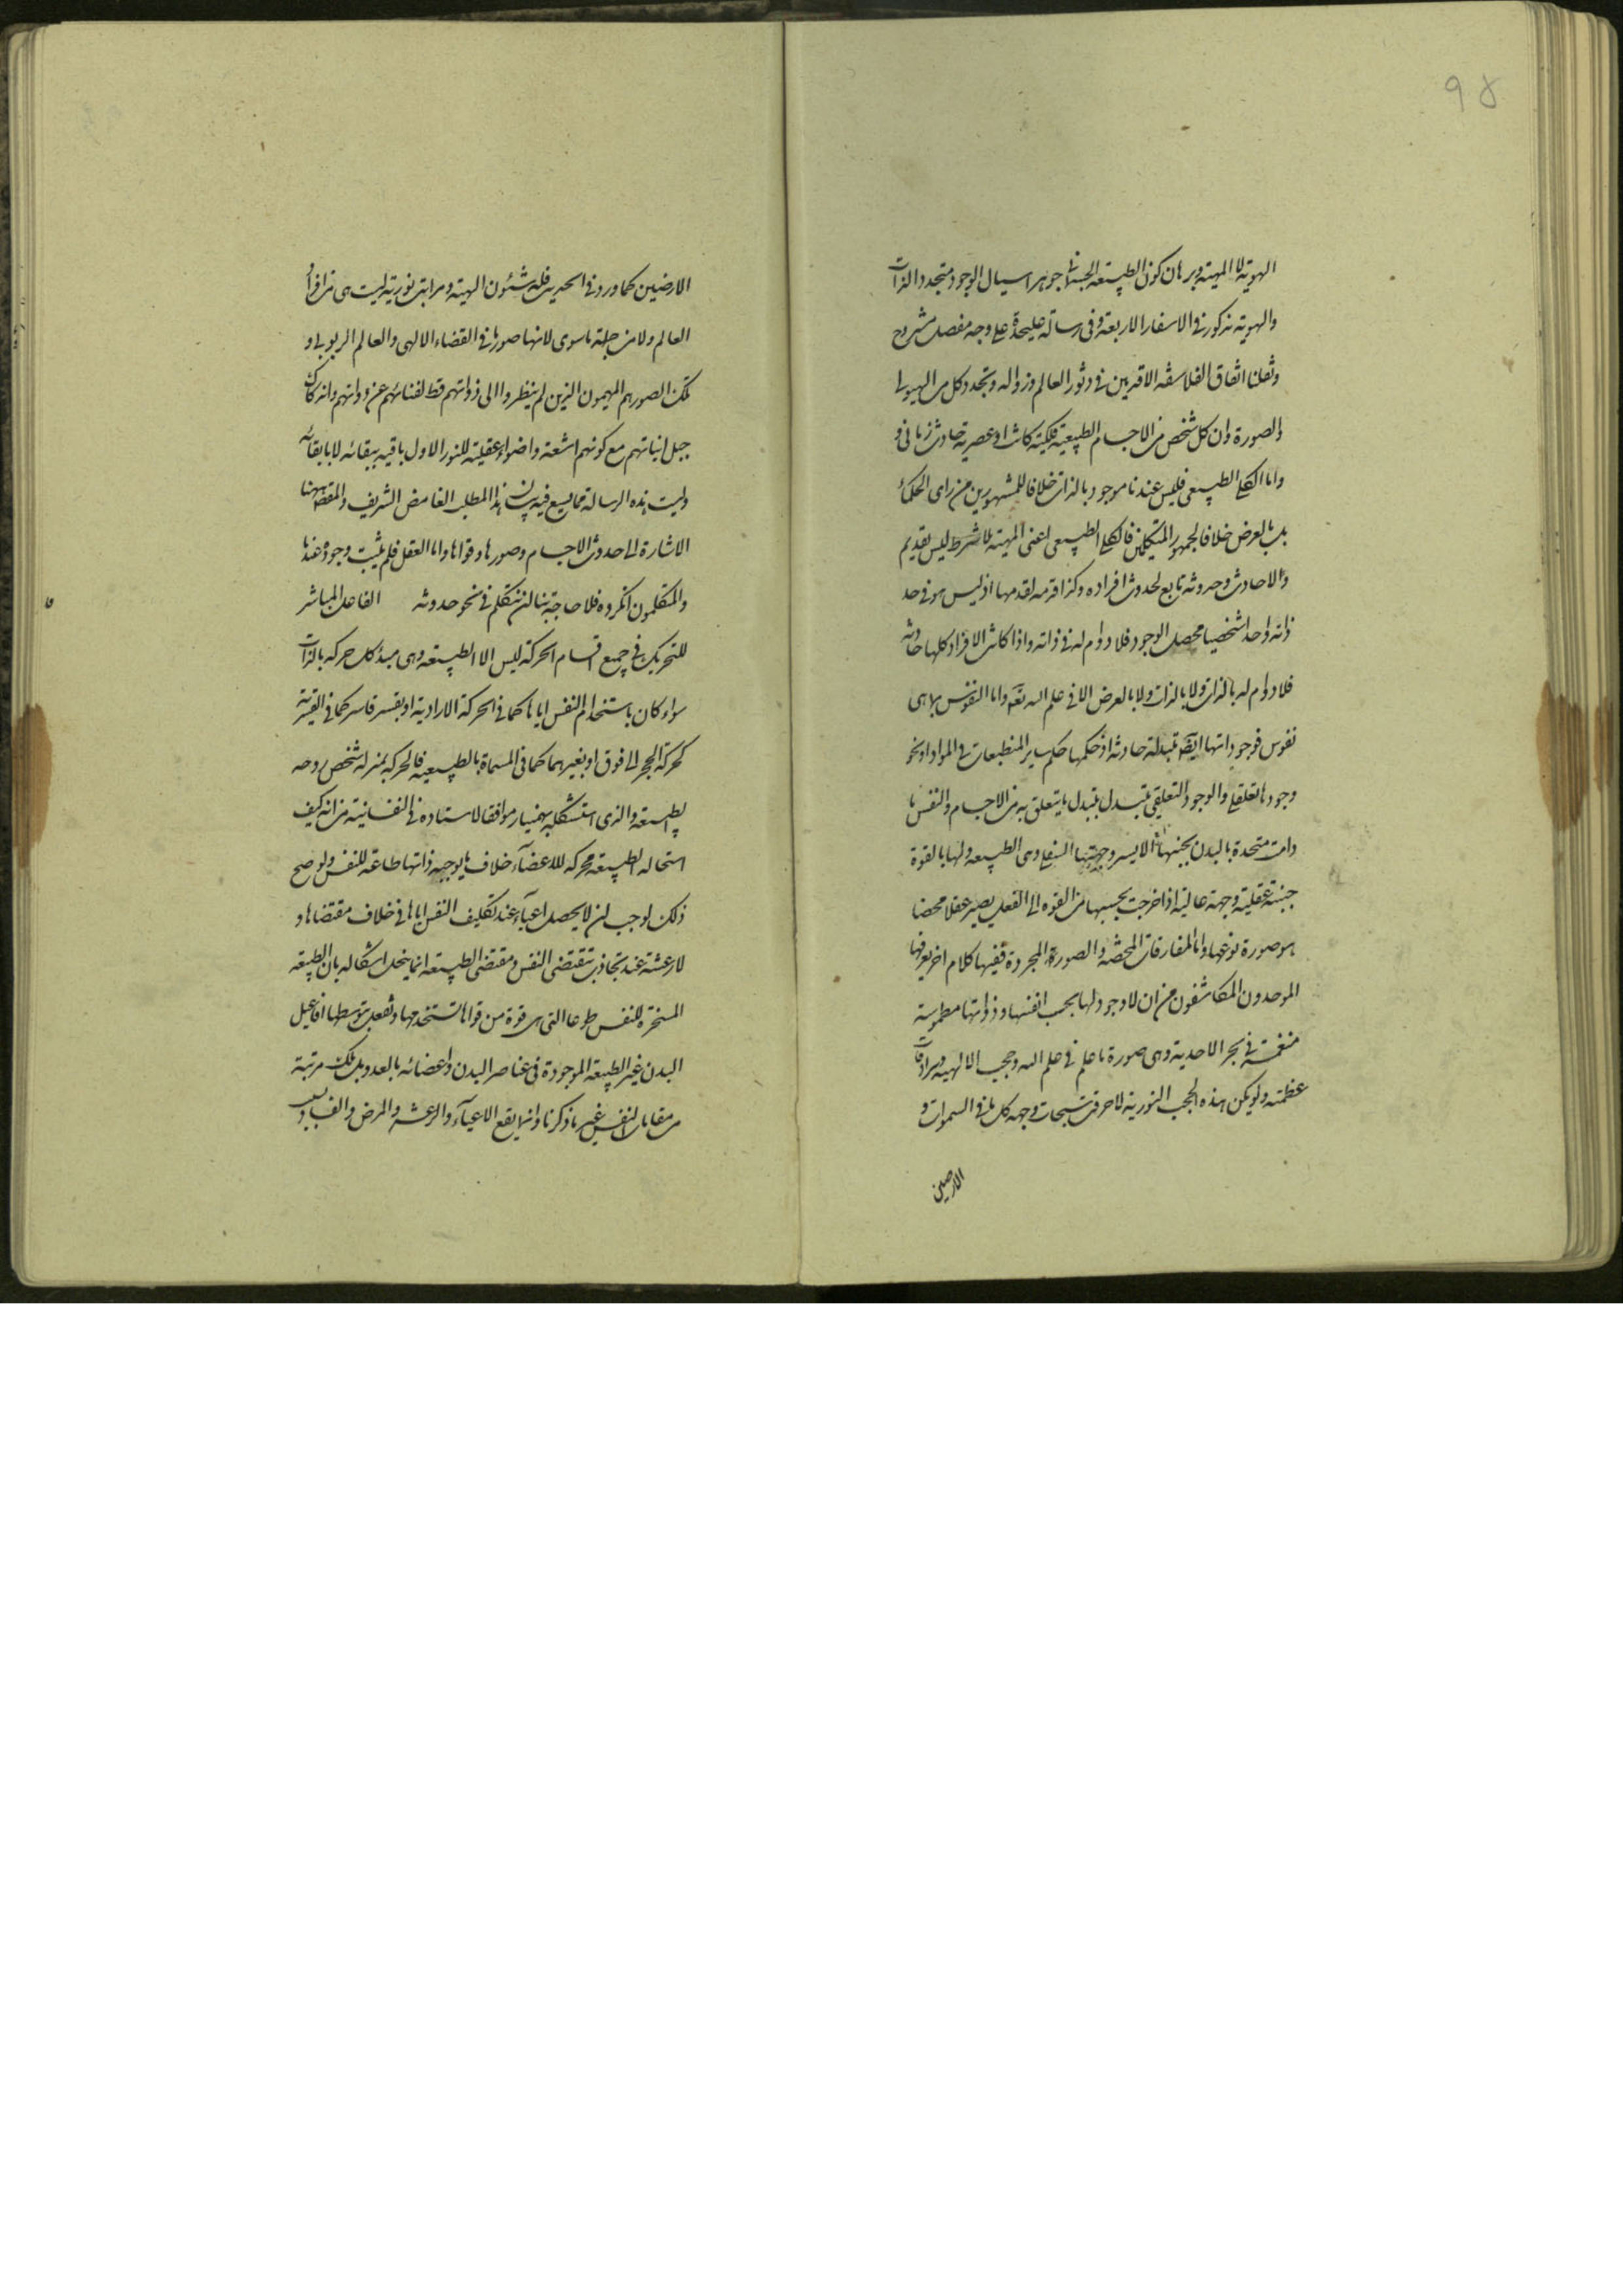 ٩٥
الهوية لا المهية وبرهان كون الطبيعة الجسمانية جوهرا سيال الوجود متجدد الذات
والهوية مذكور فى الاسفار الاربعة وفى رسالة عليحدة على وجه مفصل مشروح
ونقلنا اتفاق الفلاسفة الاقدمين فى دثور العالم وزواله وتجدد كل من الهيولى
والصورة وان كل شخص من الاجسام الطبيعية فلكية كانت او عنصرية حادث زمانى و
واما الكلى الطبيعى فليس عندنا موجود بالذات خلافا للمشهورين من راى الحكماء
بل بالعرض خلافا لجمهور المتكلمين فالكلى الطبيعى اعنى المهية لا بشرط ليس بقديم
ولا حادث وحدوثه تابع لحدوث افراده وكذا قدمه لقدمها اذ ليس هو فى حد
ذاته واحدا شخصيا محصل الوجود فلا دوام له فى ذاته واذا كانت الافراد كلها حادثة
فلا دوام له بالذات ولا بالعرض الا فى علم الله تعه واما النفوس بما هى
نفوس فوجوداتها ايضا متبدلة حادثة اذ حكمها حكم ساير المنطبعات فى المواد اذ نحو
وجودها تعلقى والوجود التعلقى يتبدل بتبدل ما يتعلق به من الاجسام والنفس ما
دامت متحدة بالبدن بجنبتها الايسر وجهتها السفلى وهى الطبيعه ولها بالقوة
جنبة عقلية وجهة عالية اذا خرجت بحسبها من القوه الى الفعل يصير عقلا محضا
هو صورة نوعها واما المفارقات المحضه والصورة المجردة ففيها كلام اخر يعرفها
الموحدون المكاشفون من ان لا وجود لها بحسب انفسها وذواتها مطموسة
منغمسة فى بحر الاحدية وهى صورة ما علم فى علم الله وحجب الالهيه وسرادقات
عظمته ولو لم يكن هذه الحجب النورية لاحرقت سبحات وجهه كل ما فى السموات و
الارضين
الارضين كما ورد فى الحديث فله شئون الهية ومراتب نورية ليست هى من افراد
العالم ولا من جملة ما سوى لانها صور ما فى القضاء الالهى والعالم الربوبى و
تلك الصور هم المهيمون الذين لم ينظروا الى ذواتهم قط لفنائهم عن ذواتهم واندكاك
جبل انياتهم مع كونهم اشعة واضواء عقلية للنور الاول باقيه ببقائه لا بابقائه
وليست هذه الرسالة مما يسع فيه بيان هذا المطلب الغامض الشريف والمقصود ههنا
الاشارة الى حدوث الاجسام وصورها وقواها واما العقل فلم يثبت وجوده عندنا
والمتكلمون انكروه فلا حاجة بنا لان نتكلم فى نحو حدوثه الفاعل المباشر
للتحريك فى جميع اقسام الحركة ليس الا الطبيعه وهى مبدء كل حركه بالذات
سواء كان باستخدام النفس اياها كما فى الحركة الارادية او بقسر قاسر كما فى القسرية
كحركة الحجر الى فوق او بغيرهما كما فى المسماة بالطبيعيه فالحركه بمنزلة شخص روحه
الطبيعة والذى استشكله بهمنيار موافقا لاستاده فى النفسانية من انه كيف
استحاله الطبيعة محركه للاعضاء خلاف ما يوجبه ذاتها طاعة للنفس ولو صح
ذلك لوجب ان لا يحصل اعياء عند تكليف النفس اياها فى خلاف مقتضاها و
لا رعشة عند تجاذب مقتضى النفس ومقتضى الطبيعه انما ينحل اشكاله بان الطبيعه
المسخرة للنفس طوعا التى هى قوة من قواها تستخدمها وتفعل بتوسطها افاعيل
البدن غير الطبيعه الموجودة فى عناصر البدن واعضائه بالعدد بل تلك مرتبة
من مقامات النفس غير ما ذكرنا وانما يقع الاعياء والرعشه والمرض والفساد بسبب